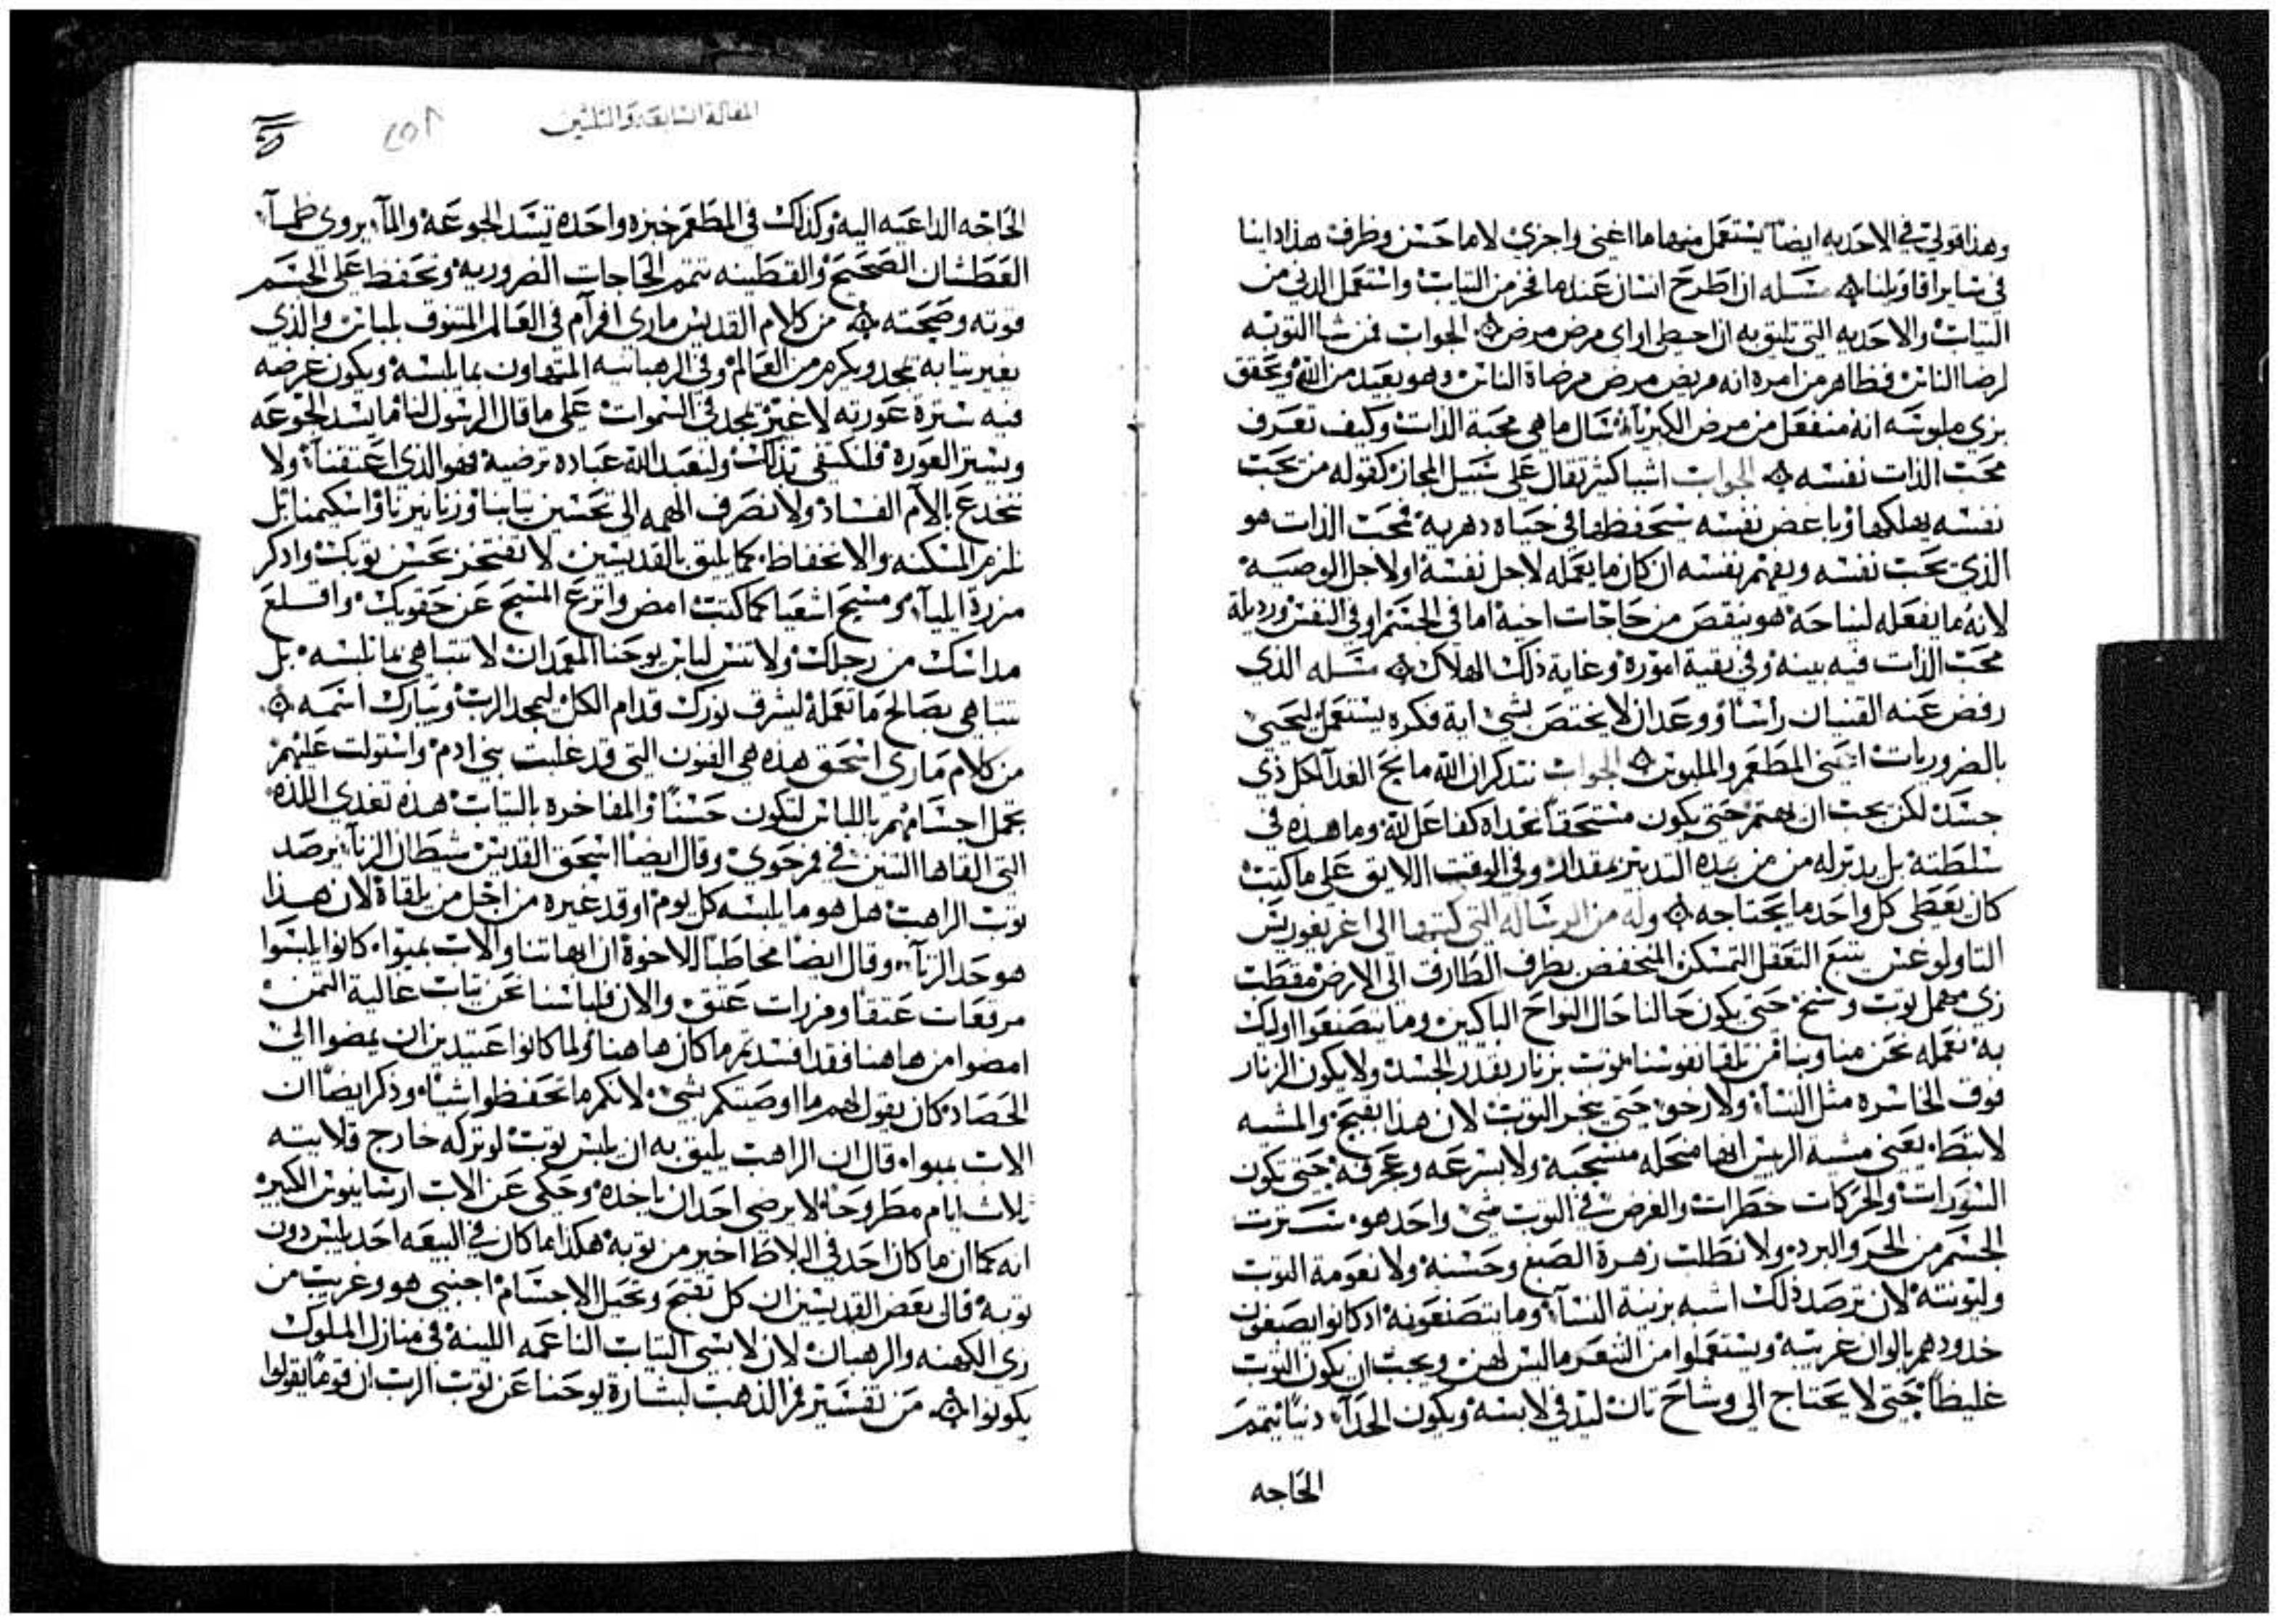 وهذا قولي في الاحديه ايضاً يستعمل منها ما اغني واجزي لا ما حسن وظرف هذا داينا
في ساير اقاويلنا مسله ان اطرح انسان عنه ما فخر من التياب واستعمل الدني من
التياب والاحديه التي تليق به ان احيطي او اي مرض مرض الجواب فمن شا التوبه
لرضا الناس فظاهر من امره انه مريض مرض مرضاة الناس وهو بعيد من الله ويحقق
بزي ملوسه انه منفعل من مرض الكبريآ سال ما هي محبة الذات وكيف تعرف
محب الذات نفسه الجواب اشيا كثير تقال على سبيل المجاز كقوله من يحب
نفسه يهلكها وباغض نفسه سيحفظها في حياه دهرية فمحب الذات هو
الذي يحب نفسه ويفهم نفسه ان كان ما يعمله لاجل نفسه او لاجل الوصيه
لانه ما يفعله لنياحه هو ينقص من حاجات اخيه اما في الجسم او في النفس ورديلة
محب الذات فيه بينه وفي بقية اموره وغاية ذلك الهلاك مسله الذي
رفض عنه القنيان رأساً ووعد ان لا يختص بشي اية فكره يستعمل ليحيي
بالضروريات اعني المطعم والملبوس الجواب نتدكر ان الله مانح الغدآ لكل ذي
جسد لكن يجب ان يهتم حتى يكون مستحقاً نحداه كفاعل لله وما هده في
سلطته بل يدبر له من من بيده التدبير بمقدار وفي الوقت اللايق على ما كتب
كان يعطي كل واحد ما يحتاجه وله من الرساله التي كتبها الى اغريغوريس
التاولوغس يتبع التعقل التمسكن المنخفض بطرف الطارف الى الارض مقطب
زي مهمل توب وسخ حتى يكون حالنا حال النواح الباكين وما يتصنعوا اوليك
به نعمله نحن منا وبنا من تلقا نفوسنا توب بزنار بقدر الجسد ولا يكون الزنار
فوق الخاسره مثل النسا ولا رخو حتى ينجر التوب لان هذا يقبح والمشيه
لا تبطا يعني مشية الريس انها منحله مسحبه ولا بسرعه وعجرفه حتى يكون
السورات والحركات خطرات والغرض في التوب شي واحد هو سترت
الجسم من الحر والبرد ولا تطلب زهرة الصبغ وحسنه ولا نعومة التوب
وليونته لان ترصد ذلك اشبه بزينة النسآ وما يتصنعونه اد كانوا يصبغون
خدودهم بالوان غريبه ويستعملوا من الشعر ما ليس لهن ويجب ان يكون التوب
غليظاً حتى لا يحتاج الى وشاح تان ليدفي لابسه ويكون الحدآ دنياً يتمم
الحاجه
المقالة السابعة والتلتين
الحاجه الداعيه اليه وكذلك في المطعم خبزه واحده تسد الجوعه والمآ يروي ظمآ
العطشان الصحيح والقطنيه تتمم الحاجات الضروريه وتحفظ على الجسم
قوته وصحته من كلام القديس ماري افرآم في العالم المتنوف بلباس والذي
يغير تيابه يمجد ويكرم من العالم وفي الرهبانيه المتهاون بما يلبسه ويكون غرضه
فيه سترة عورته لا غير يمجد في السموات على ما قال الرسول لنا ما يسد الجوعه
ويستر العوره فلنكتفي بذلك ولنعبد الله عباده ترضيه فهو الذي اعتقنا ولا
نخدع بالآم الفساد ولا نصرف الهمه الى تحسين تيابنا وزنانيرنا واسكيمنا بل
نلزم المسكنه والانخفاظ كما يليق بالقديسين لا تفتخر بحسن توبك وادكر
مزرة ايليآ ومسيح اشعيا كما كتب امض وانزع المسيح عن حقويك واقلع
مداسك من رجلك ولا تنس لباس يوحنا المعمدان لا تتباهي بما تلبسه بل
تتباهي بصالح ما تعمله ليشرق نورك قدام الكل ليمجد الرب ويبارك اسمه
من كلام ماري اسحق هذه هي الفنون التي قد غلبت بني ادم واستولت عليهم
تجمل اجسامهم باللباس لتكون حسناً والمفاخره بالتياب هذه تغدي اللده
التي القاها التنين في فم حوي وقال ايضاً اسحق القديس شيطان الزنآ يرصد
توب الراهب هل هو ما يلبسه كل يوم او قد غيره من اجل من يلقاه لان هذا
هو حد الزنآ وقال ايضاً مخاطباً للاخوة ان ابهاتنا والاب بمبواه كانوا يلبسوا
مرقعات عتقاً ومزرات عتق والان فلباسنا نحن تياب عالية التمن
امضوا من هاهنا فقد افسدتم ما كان هاهنا ولما كانوا عتيدين ان يمضوا الى
الحصاد كان يقول لهم ما اوصيكم بشي لانكم ما تحفظوا شياً وذكر ايضاً ان
الاب بمبواه قال ان الراهب يليق به ان يلبس توب لو تركه خارج قلايته
تلات ايام مطروحاً لا يرضي احد ان ياخده وحكى عن الاب ارسانيوس الكبير
انه كما ان ما كان احد في البلاط اخير من توبه هكذا ما كان في البيعه احد يلبس دون
توبه قال بعض القديسين ان كل تفنج وتجمل الاجسام اجنبي هو وغريب من
زي الكهنه والرهبان لان لابسي التياب الناعمه اللينه في منازل الملوك
يكونوا من تفسير فم الذهب لبشارة يوحنا عن توب الرب ان قوماً يقولوا